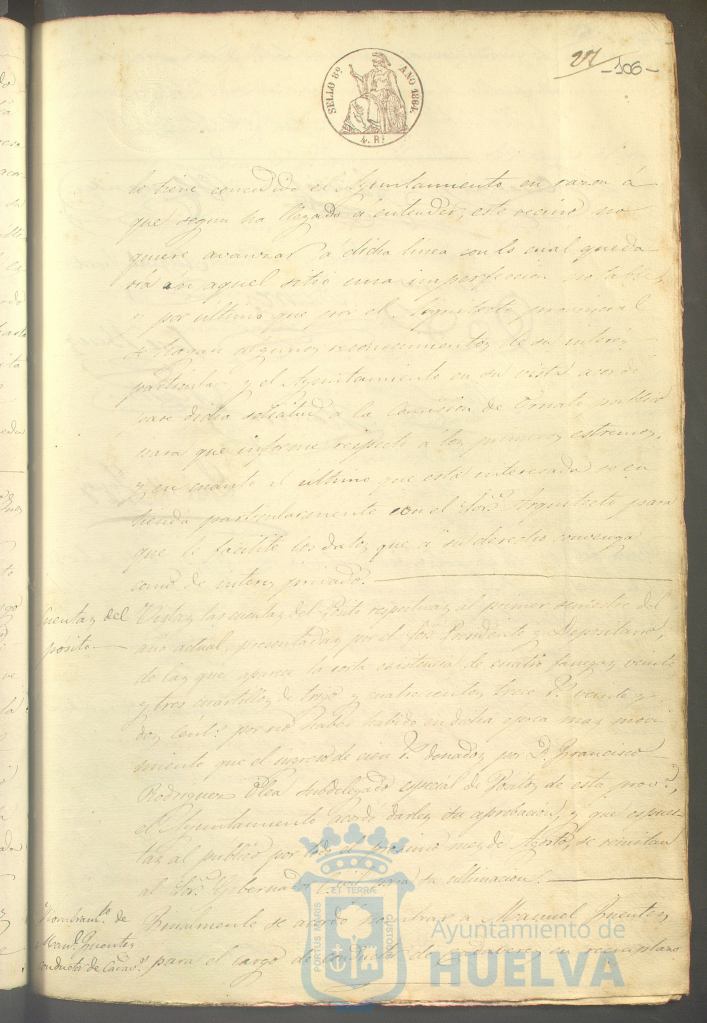 SELLO 8º AÑO 1861.
4. Rs
27
-106-
lo tiene concedido el Ayuntamiento en razon á
que segun ha llegado á entender, este vecino no
quiere avanzar á dicha linea con lo cual queda-
rá en aquel sitio una imperfeccion notable,
y por ultimo que por el Arquitecto provincial
se hagan algunos reconocimientos de su interes
particular y el Ayuntamiento en su vista acordó
pase dicha solicitud a la Comision de Ornato publico
para que informe respecto a los primeros estremos,
y en cuanto al último que está interesada se en
tienda particularmente con el Sor. Arquitecto para
que le facilite los datos que a su derecho convenga
como de interes privado.
Cuentas del
posito
Vistas las cuentas del Posito respectivas al primer semestre del
año actual, presentadas por el Sor. Presidente y Depositario,
de las que aparece la corta existencia de cuatro fanegas veinte
y tres cuartillos de trigo y cuatrocientos trece rs. veinte y
dos cents. por no haber habido en dicha epoca mas movi
miento que el ingreso de cien rs. donados por D. Francisco
Rodriguez Olea Subdelegado especial de Positos de esta prova,
el Ayuntamiento acordó darles su aprobacion, y que espues-
tas al publico por todo el procsimo mes de Agosto, se remitan
al Sor. Gobernador Civil para su ultimacion.
Nombramto. de
Manl. Fuentes
conductor de Cadavs.
Finalmente se acordó nombrar a Manuel Fuentes
para el cargo de conductor de cadaveres en reemplazo
PORTUS MARIS
ET TERRÆ
CUSTODIA
Ayuntamiento de
HUELVA